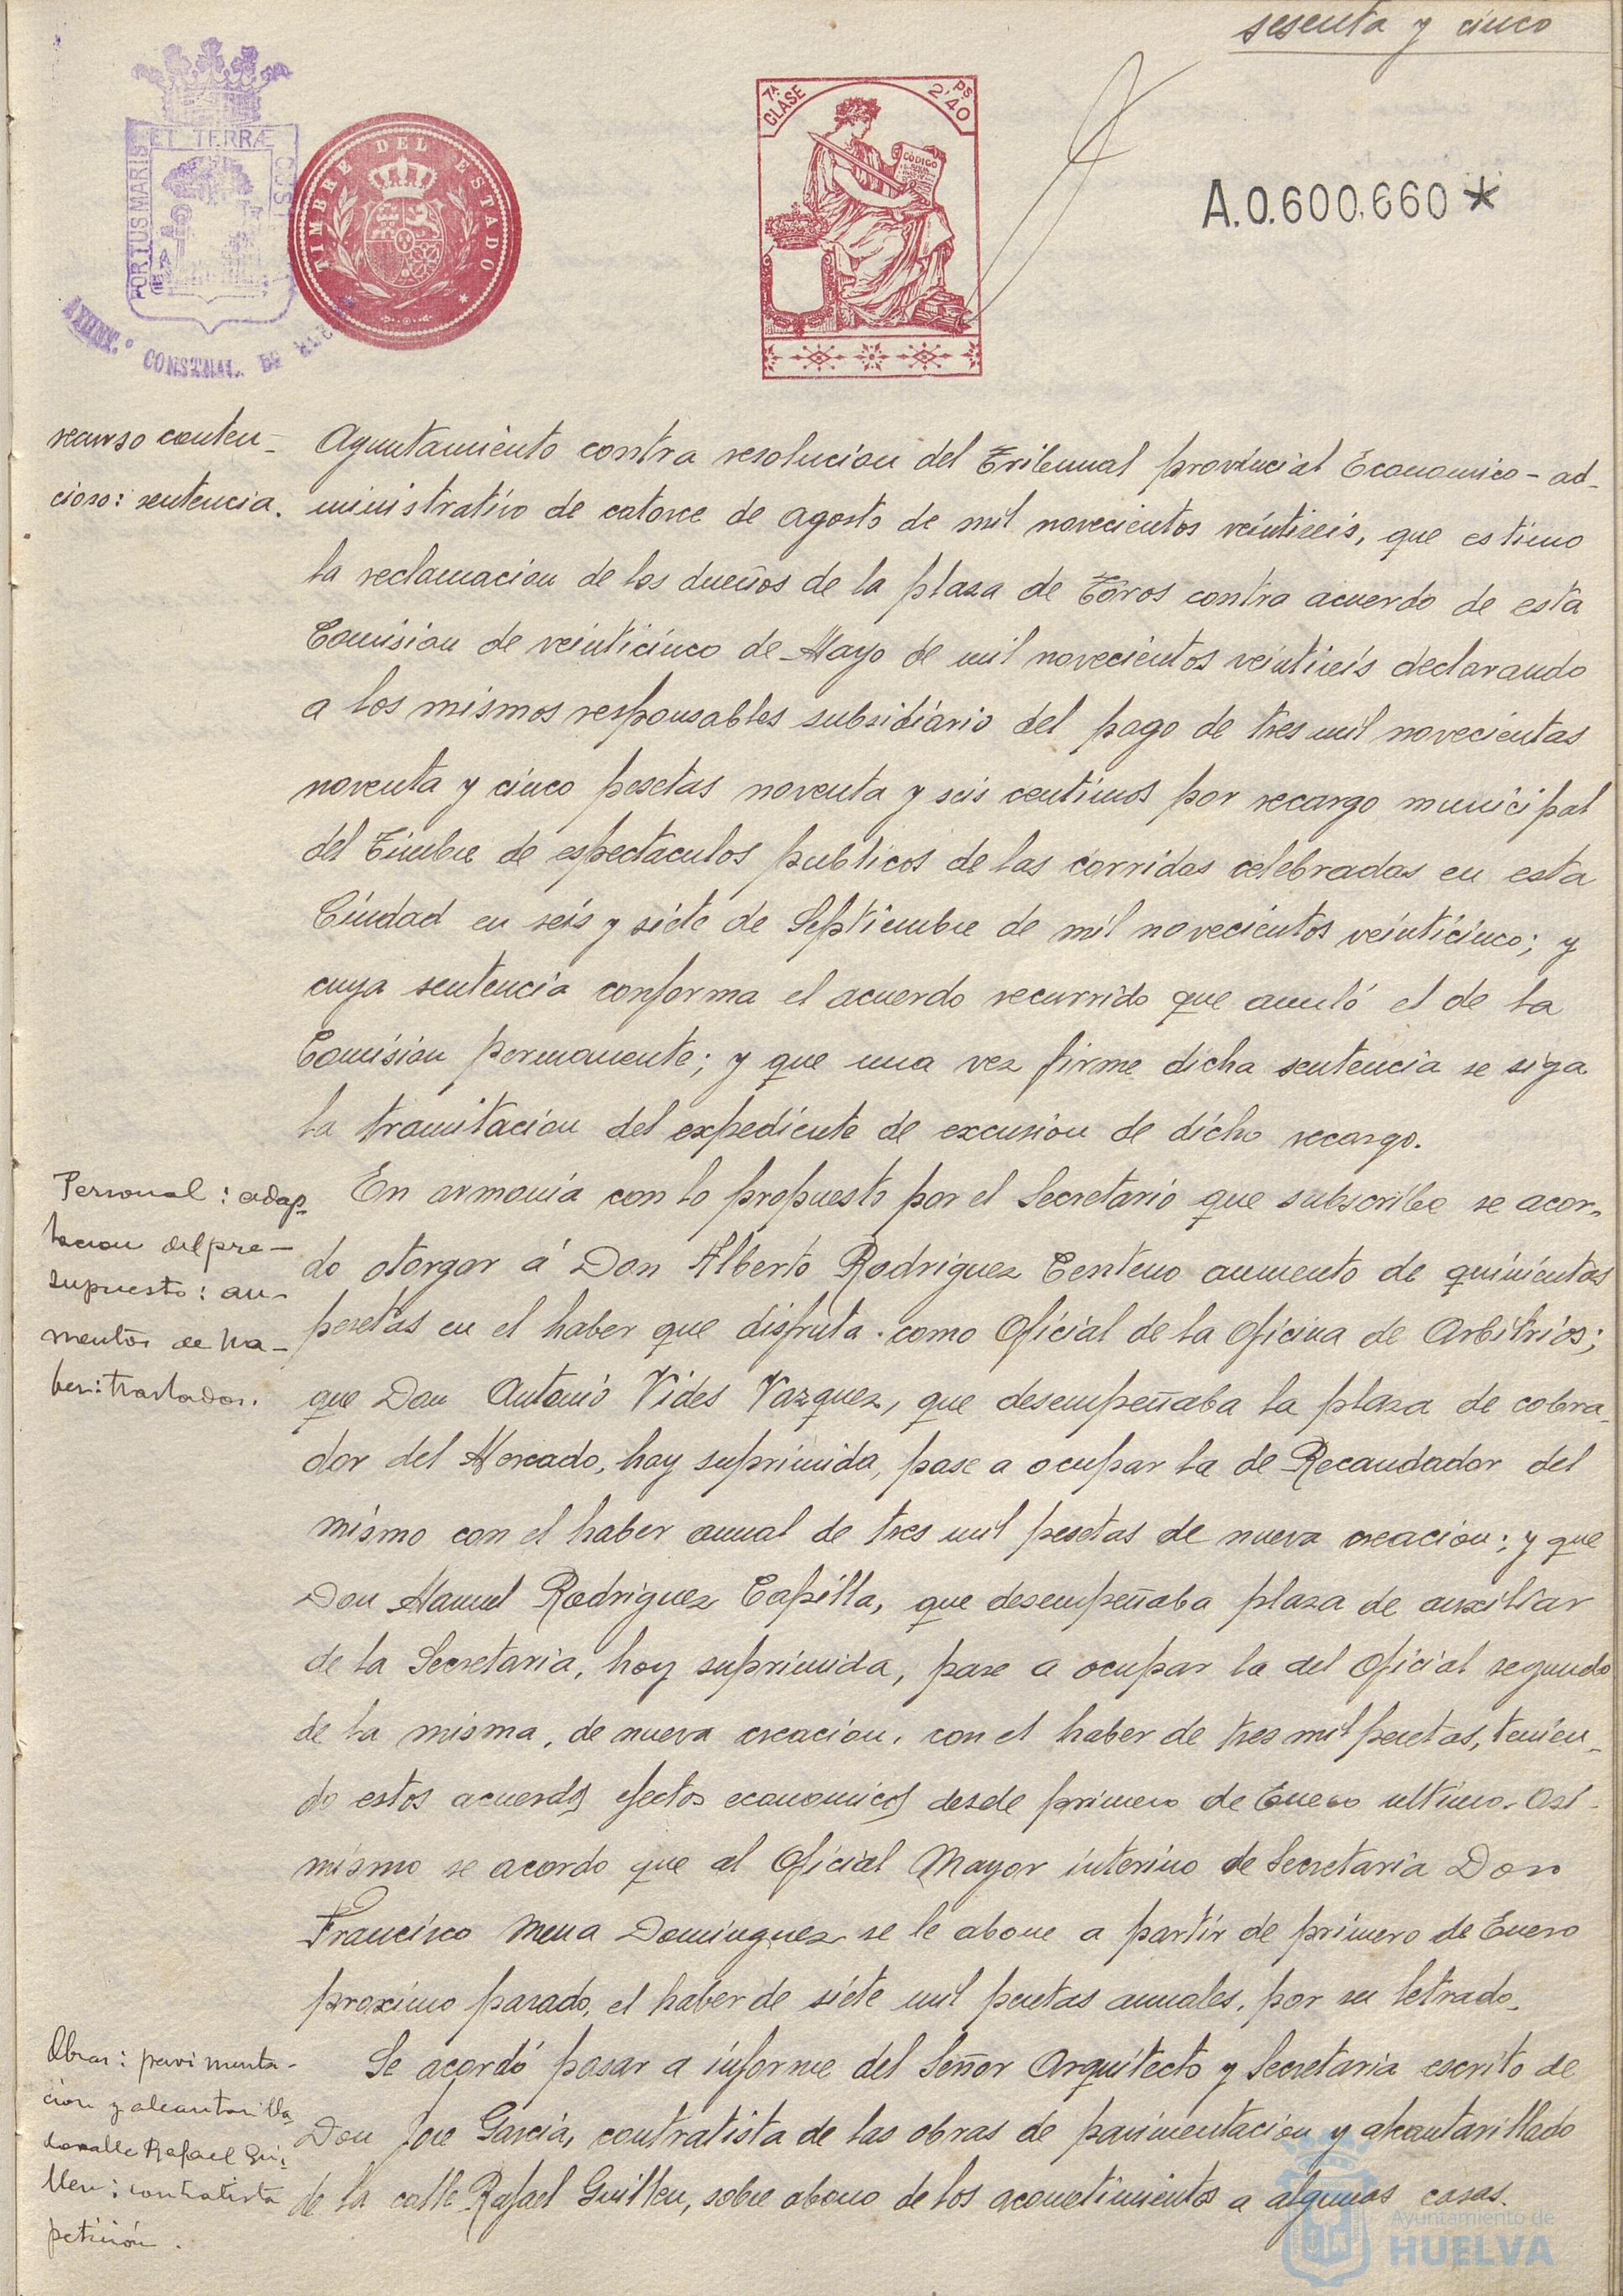 sesenta y cinco
PORTUS MARIS ET TERRÆ CUS
AYUNT.º CONSTNAL. DE HUELVA
TIMBRE DEL ESTADO
7ª CLASE
Ps 2'40
CÓDIGO
A.0.600.660*
recurso conten-
cioso: sentencia.
Ayuntamiento contra resolucion del Tribunal provincial Economico-ad-
ministrativo de catorce de agosto de mil novecientos veintiseis, que estimo
la reclamacion de los dueños de la plaza de Toros contra acuerdo de esta
Comision de veinticinco de Mayo de mil novecientos veintiseis declarando
a los mismos responsables subsidiario del pago de tres mil novecientas
noventa y cinco pesetas noventa y seis centimos por recargo municipal
del Timbre de espectaculos publicos de las corridas celebradas en esta
Ciudad en seis y siete de Septiembre de mil novecientos veinticinco; y
cuya sentencia conforma el acuerdo recurrido que anuló el de la
Comision permanente; y que una vez firme dicha sentencia se siga
la tramitacion del expediente de excusion de dicho recargo.
Personal: adap-
tacion del pre-
supuesto: au-
mentos de ha-
ber: traslados.
En armonia con lo propuesto por el Secretario que subscribe se acor-
do otorgar á Don Alberto Rodriguez Centeno aumento de quinientas
pesetas en el haber que disfruta como Oficial de la Oficina de Arbitrios;
que Don Antonio Vides Vazquez, que desempeñaba la plaza de cobra-
dor del Mercado, hoy suprimida, pase a ocupar la de Recaudador del
mismo con el haber anual de tres mil pesetas de nueva creacion; y que
Don Manuel Rodriguez Capilla, que desempeñaba plaza de auxiliar
de la Secretaria, hoy suprimida, pase a ocupar la del Oficial segundo
de la misma, de nueva creacion, con el haber de tres mil pesetas, tenien-
do estos acuerdos efectos economicos desde primero de Enero ultimo. Asi-
mismo se acordo que al Oficial Mayor interino de Secretaria Don
Francisco Mena Dominguez se le abone a partir de primero de Enero
proximo pasado, el haber de siete mil pesetas anuales, por ser letrado.
Obras: pavimenta-
cion y alcantarilla-
do calle Rafael Gui-
llen: contratista
petición.
Se acordó pasar a informe del Señor Arquitecto y Secretaria escrito de
Don Jose Garcia, contratista de las obras de pavimentacion y alcantarillado
de la calle Rafael Guillen, sobre abono de los acometimientos a algunas casas.
Ayuntamiento de
HUELVA